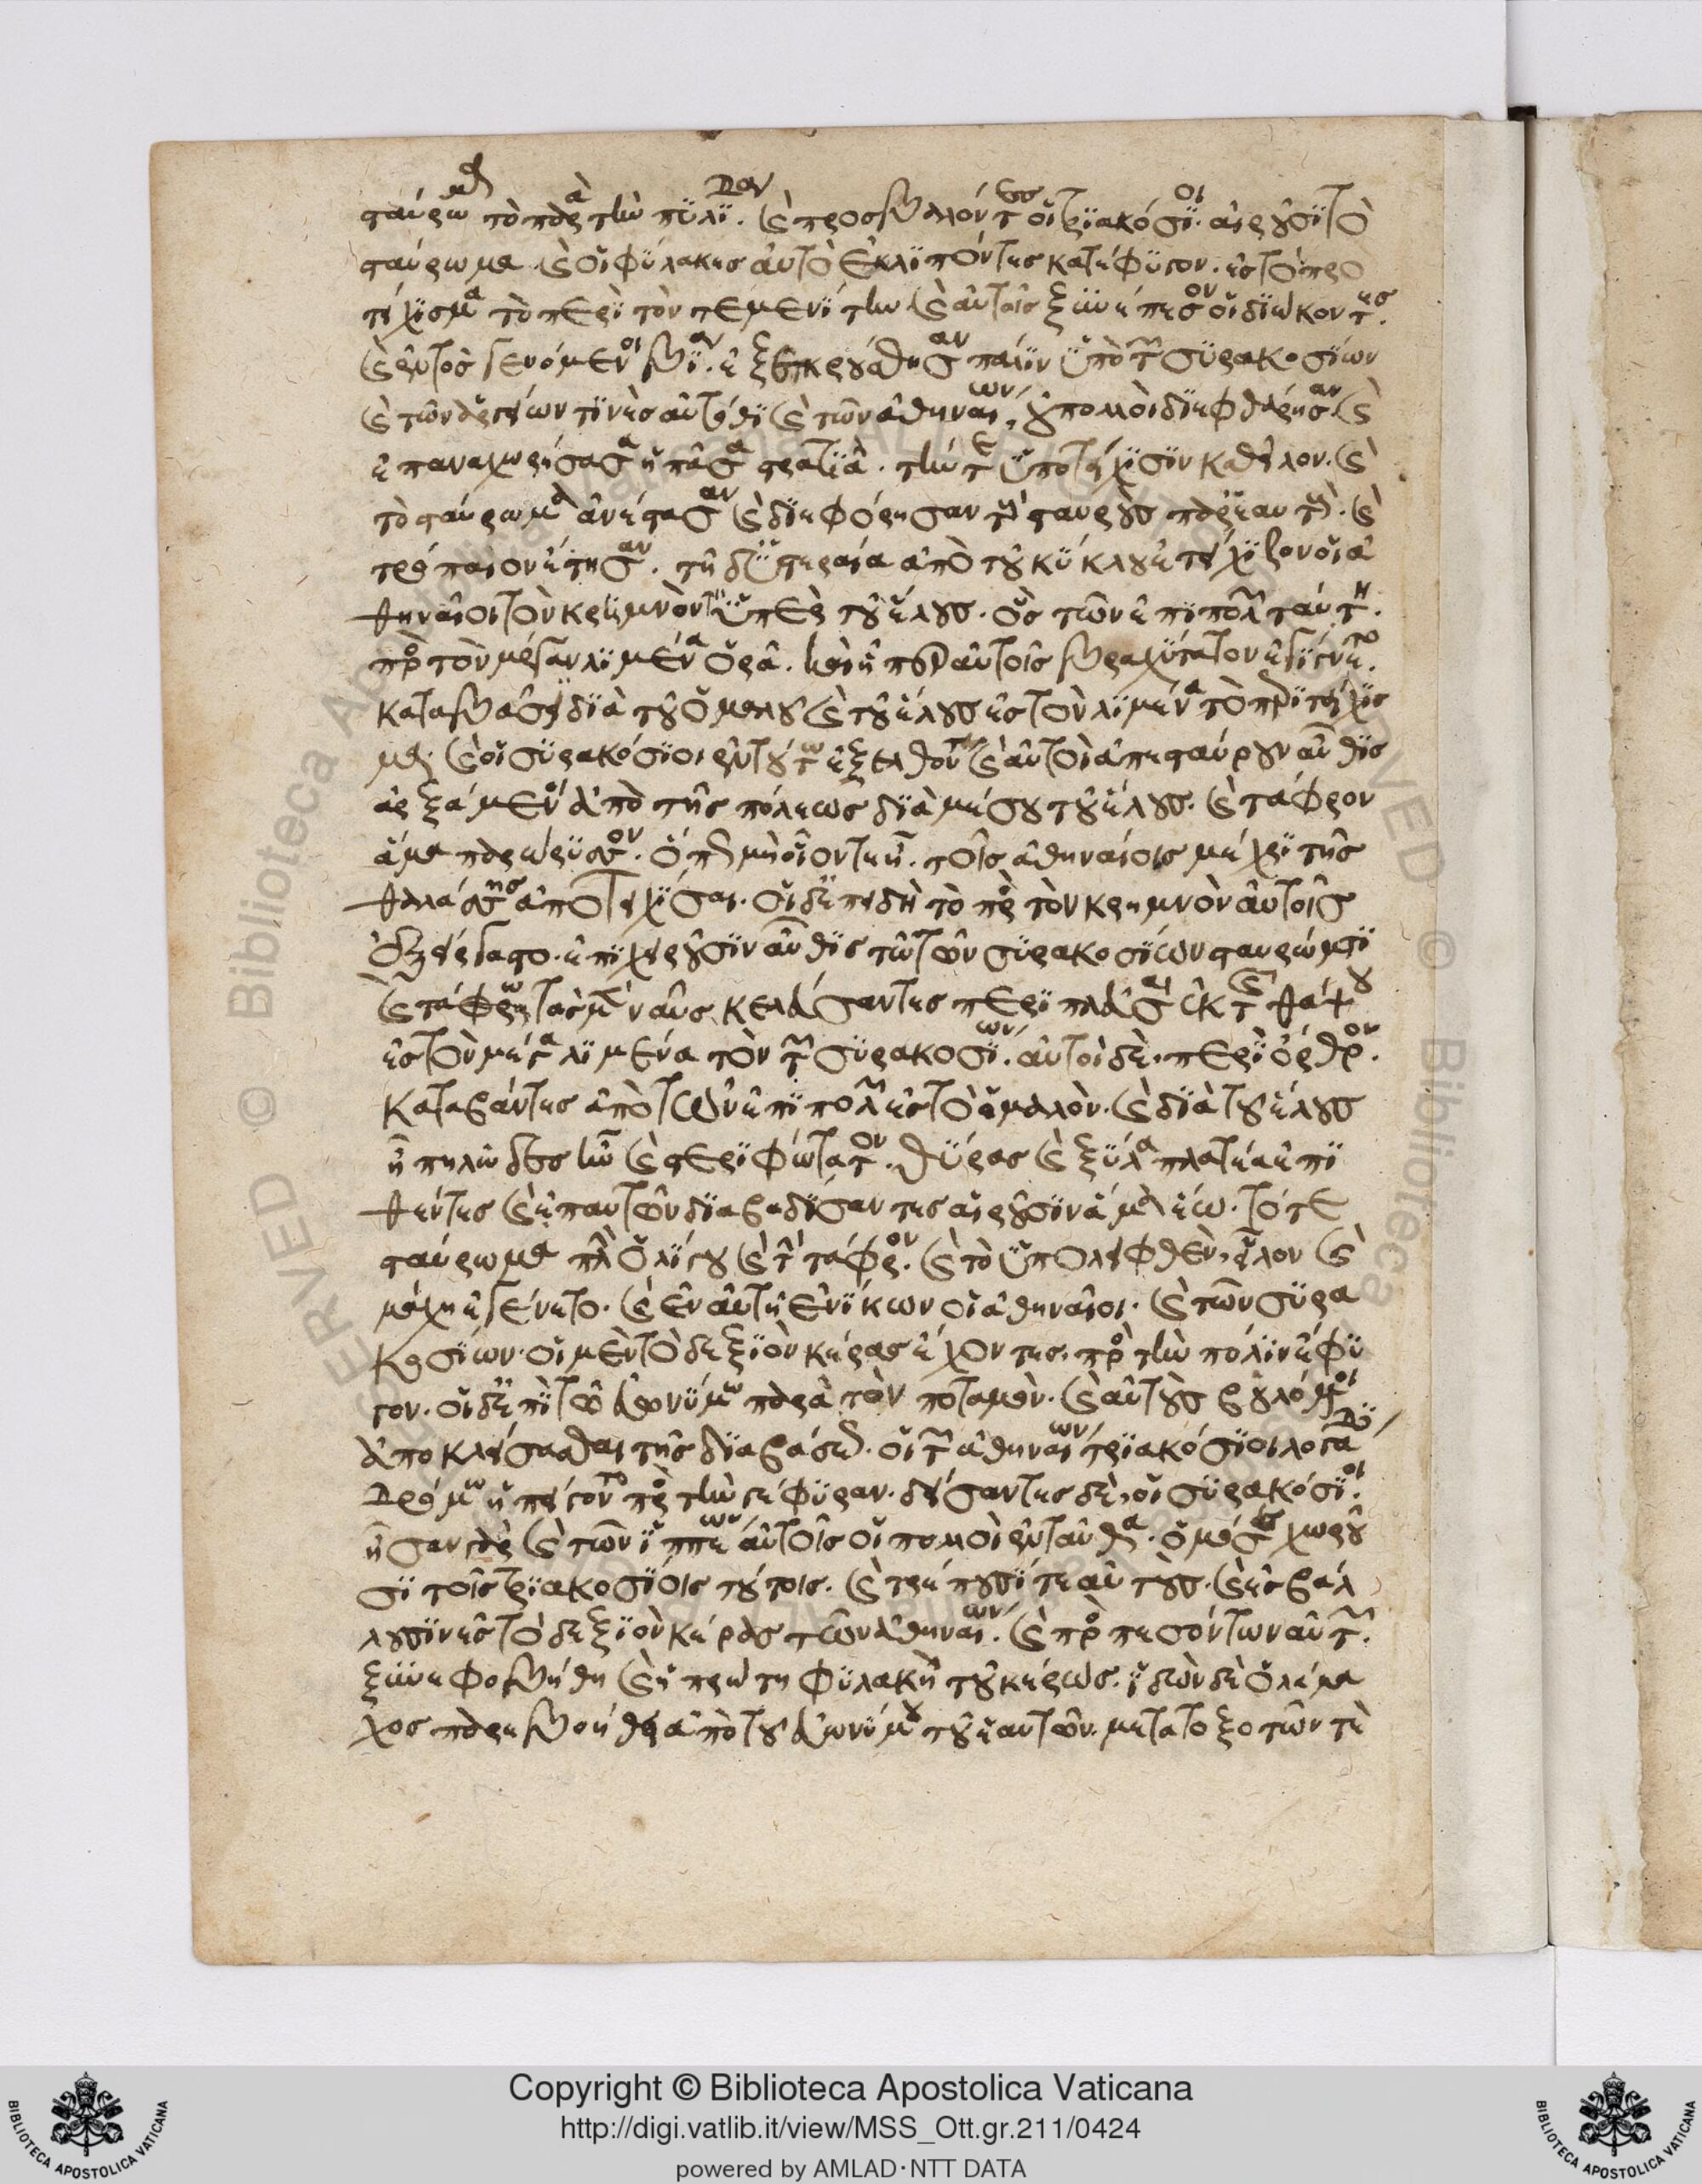 σταύρωμα τὸ παρὰ τὴν πυλίδα. καὶ προσβαλόντες οἱ τριακόσιοι. αἱροῦσι τὸ
σταύρωμα καὶ οἱ φύλακες αὐτὸ ἐκλιπόντες κατέφυγον. ἐς τὸ προ
τείχισμα τὸ περὶ τὸν τεμενίτην καὶ αὐτοῖς ξυνέπεσον οἱ διώκοντες.
καὶ ἐντὸς γενόμενοι βίαν. ἐξεκρούσθησαν πάλιν ὑπὸ τῶν συρακοσίων
καὶ τῶν ἀργείων τινὲς αὐτόθι καὶ τῶν ἀθηναίων, οὐ πολλοὶ διεφθάρησαν. καὶ
ἐπαναχωρήσασα ἡ πᾶσα στρατιὰ. τήν τε ὑποτείχισιν καθεῖλον. καὶ
τὸ σταύρωμα ἀνέσπασαν καὶ διεφόρησαν τοὺς σταυροὺς παρ' ἑαυτούς. καὶ
τρόπαιον ἔστησαν. τῇ δ' ὑστεραία ἀπὸ τοῦ κύκλου ἐτείχιζον οἱ ἀ
θηναῖοι τὸν κρημνὸν τὸν ὑπὲρ τοῦ ἕλους. ὃς τῶν ἐπιπολῶν ταύτη.
πρὸς τὸν μέγαν λιμένα ὁρᾶ. καὶ ᾗπερ αὐτοῖς βραχύτατον ἐγίγνετο.
καταβᾶσι διὰ τοῦ ὁμαλοῦ καὶ τοῦ ἕλους ἐς τὸν λιμένα τὸ περιτείχισ
μα. καὶ οἱ συρακόσιοι ἐν τούτω ἐξελθόντες καὶ αὐτοὶ ἀπεσταύρουν αὖθις
ἀρξάμενοι ἀπὸ τῆς πόλεως διὰ μέσου τοῦ ἕλους. καὶ τάφρον
ἅμα παρώρυσσον. ὅπως μὴ οἷόντε ᾖ. τοῖς ἀθηναίοις μέχρι τῆς
θαλάσσης ἀποτειχίσαι. οἱ δ' ἐπειδὴ τὸ πρὸς τὸν κρημνὸν αὐτοῖς
ἐξείργαστο. ἐπιχειροῦσιν αὖθις τῷ τῶν συρακοσίων σταυρώματι
καὶ τάφρω τὰς μὲν ναῦς κελεύσαντες περιπλεῦσαι ἐκ τῆς θάψου
ἐς τὸν μέγαν λιμένα τὸν τῶν συρακοσίων. αὐτοὶ δὲ. περὶ ὄρθρον.
καταβάντες ἀπὸ τῶν ἐπιπολῶν ἐς τὸ ὁμαλὸν. καὶ διὰ τοῦ ἕλους
ᾗ πηλῶδες ἦν καὶ στεριφώτατον. θύρας καὶ ξύλα πλατέα ἐπι
θέντες καὶ ἐπ' αὐτῶν διαβαδίσαντες αἱροῦσιν ἅμα ἕω. τό τε
σταύρωμα πλὴν ὀλίγου καὶ τὴν τάφρον. καὶ τὸ ὑπολειφθὲν, εἷλον καὶ
μάχη ἐγένετο. καὶ ἐν αὐτῇ ἐνίκων οἱ ἀθηναῖοι. καὶ τῶν συρα
κοσίων. οἱ μὲν τὸ δεξιὸν κέρας ἔχοντες. πρὸς τὴν πόλιν ἔφυ
γον. οἱ δ' ἐπὶ τῷ εὐωνύμω παρὰ τὸν ποταμὸν. καὶ αὐτοὺς βουλόμενοι
ἀποκλείσασθαι τῆς διαβάσεως. οἱ τῶν ἀθηναίων τριακόσιοι λογάδες
δρόμω ἠπείγοντο πρὸς τὴν γέφυραν. δείσαντες δὲ, οἱ συρακόσιοι.
ἦσαν γὰρ καὶ τῶν ἱππέων αὐτοῖς οἱ πολλοὶ ἐνταῦθα. ὁμόσε χωροῦ
σι τοῖς τριακοσίοις τούτοις. καὶ τρέπουσί τε αὐτοὺς. καὶ ἐσβάλ
λουσιν ἐς τὸ δεξιὸν κέρας τῶν ἀθηναίων. καὶ προσπεσόντων αὐτῶν.
ξυνεφοβήθη καὶ ἡ πρώτη φυλακὴ τοῦ κέρως. ἰδὼν δὲ ὁ λάμα
χος παρεβοήθει ἀπὸ τοῦ εὐωνύμου τοῦ ἑαυτῶν. μετὰ τοξοτῶν τε
Copyright © Biblioteca Apostolica Vaticana
http://digi.vatlib.it/view/MSS_Ott.gr.211/0424
powered by AMLAD·NTT DATA